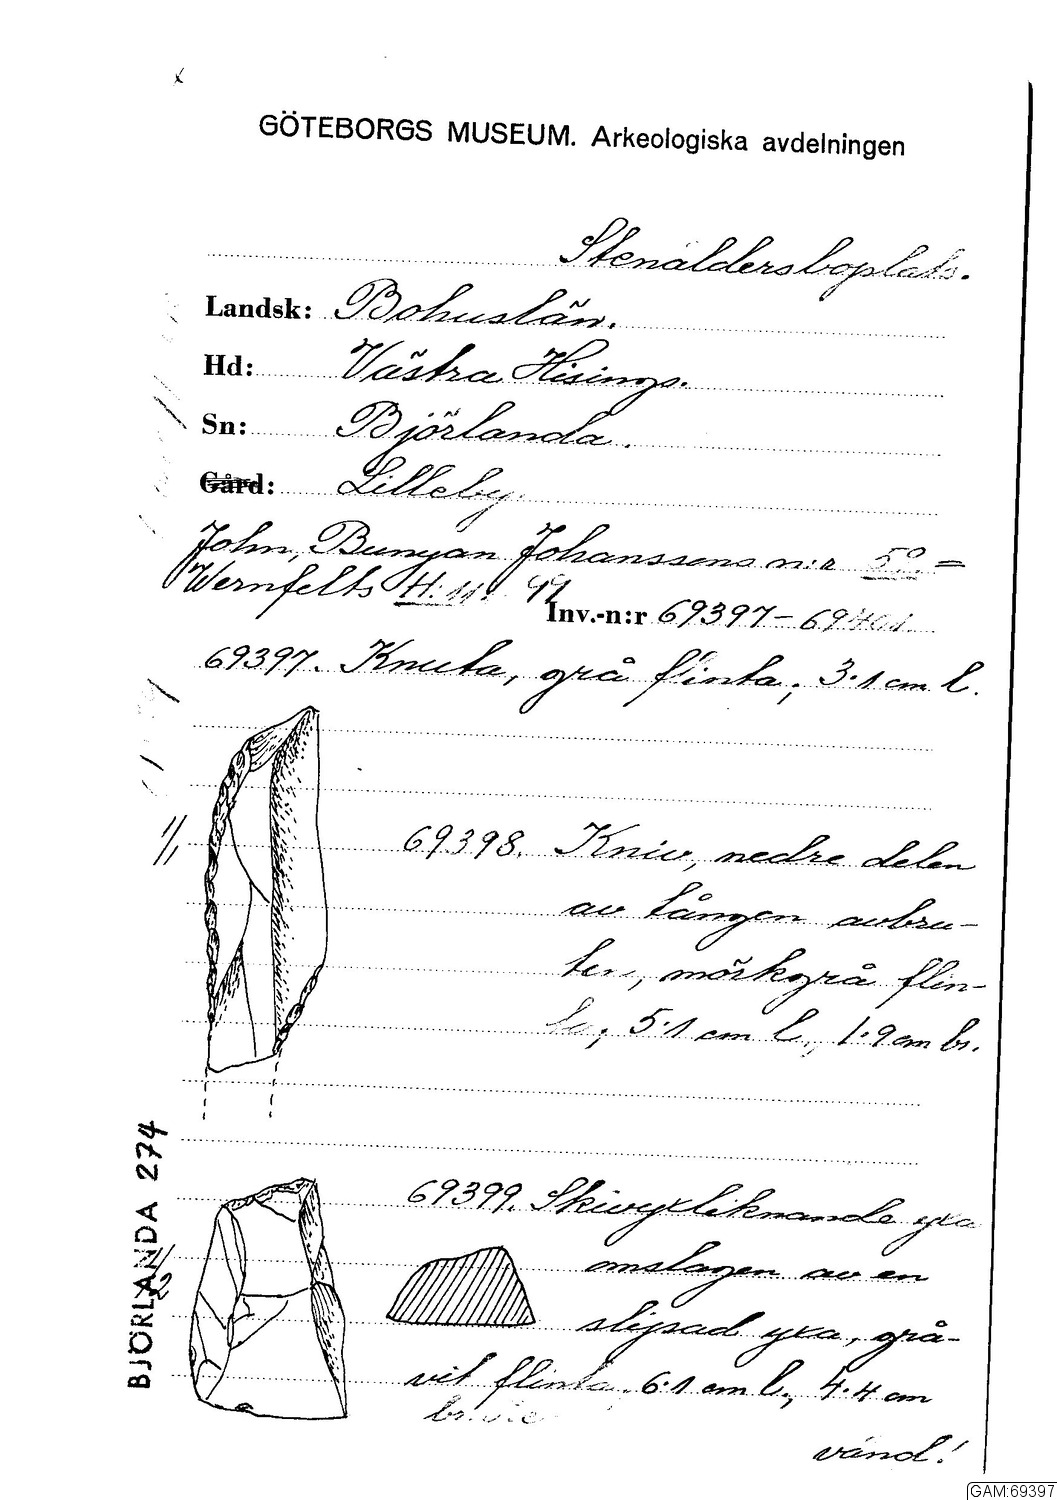 GÖTEBORGS MUSEUM. Arkeologiska avdelningen
Stenåldersboplats.
Landsk: Bohuslän.
Hd: Västra Hisings.
Sn: Björlanda.
Gård: Lilleby.
John, Bunyan Johanssons n:r 50. =
Wernfelts H:
Inv.-n:r 69397-69401.
69397. Knuta, grå flinta, 3.1 cm l.
69398. Kniv, nedre delen
av tången avbru-
ten, mörkgrå flin-
ta, 5.1 cm l., 1.9 cm br.
69399. Skivyxliknande yxa
omslagen av en
slipad yxa, grå-
vit flinta, 6.1 cm l., 4.4 cm
vänd!
BJÖRLANDA 274
1/1
GAM:69397